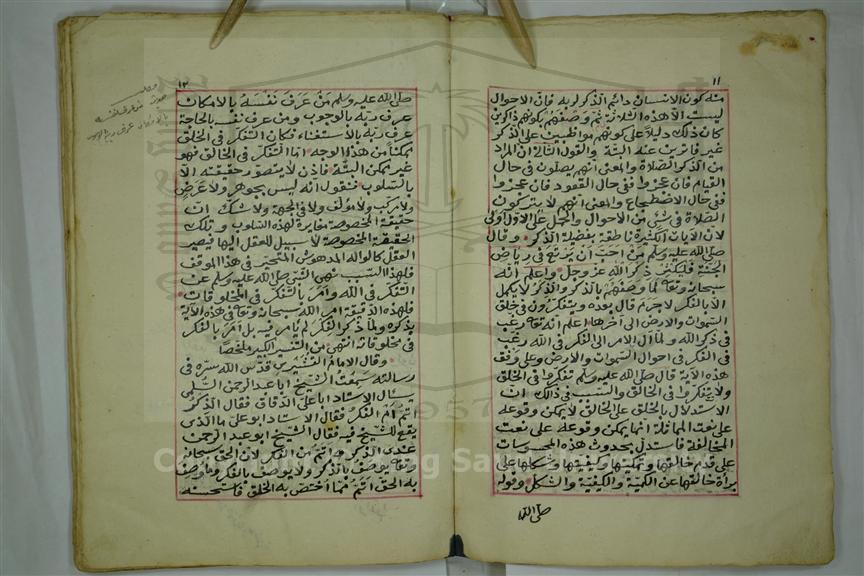 ١١
منه كون الانسان دائم الذكر لربه فان الاحوال
ليست الا هذه الثلاثة ثم وصفهم بكونهم ذاكرين
كان ذلك دليلا على كونهم مواظبين على الذكر
غير فاترين عنه البتة والقول الثانى ان المراد
من الذكر الصلاة والمعنى انهم يصلون فى حال
القيام فان عجزوا ففى حال القعود فان عجزوا
ففى حال الاضطجاع والمعنى انهم لا يتركون
الصلاة فى شئ من الاحوال والحمل على الاول اولى
لان الايات الكثيرة ناطقة بفضيلة الذكر وقال
صلى الله عليه وسلم من احب ان يرتع فى رياض
الجنة فليكثر ذكر الله عز وجل واعلم انه
سبحانه وتعه لما وصفهم بالذكر والذكر لا يكمل
الا بالفكر لا جرم قال بعده ويتفكرون فى خلق
السموات والارض الى آخرها اعلم انه تعه رغب
فى ذكر الله ولما آل الامر الى الفكر فى الله رغب
فى الفكر فى احوال السموات والارض وعلى وفق
هذه الآية قال صلى الله عليه وسلم تفكروا فى الخلق
ولا تتفكروا فى الخالق والسبب فى ذالك ان
الاستدلال بالخلق على الخالق لا يمكن وقوعه
على نعت المماثلة انما يمكن وقوعه على نعت
المخالفة فاستدل بحدوث هذه المحسوسات
على قدم خالقها وبكميتها وكيفيتها وشكلها على
برآءة خالقها عن الكمية والكيفية والشكل وقوله
صلى الله
١٢
صلى الله عليه وسلم من عرف نفسه بالامكان
عرف ربه بالوجوب ومن عرف نفسه بالحاجة
عرف ربه بالاستغناء فكان التفكر فى الخلق
ممكنا من هذا الوجه اما التفكر فى الخالق فهو
غير ممكن البتة فاذن لا يتصور حقيقته الا
بالسلوب فنقول انه ليس بجوهر ولا عرض
ولا مركب ولا مؤلف ولا فى الجهة ولا شك ان
حقيقة المخصوصة مغايرة لهذه السلوب وتلك
الحقيقة المخصوصة لا سبيل للعقل اليها فيصير
العقل كالواله المدهوش المتحير فى هذا الموقف
فلهذا السبب نهى النبى صلى الله عليه وسلم عن
التفكر فى الله وامر بالتفكر فى المخلوقات
فلهذه الدقيقة امر الله سبحانه وتعه فى هذه الآية
بذكره ولما ذكر الفكر لم يأمر فيه بل امر بالفكر
فى مخلوقاته انتهى من التفسير الكبير ملخصا
وقال الامام القشيرى قدس الله سره فى
رسالته سمعت الشيخ ابا عبد الرحمن السلمى
يسأل الاستاد ابا على الدقاق فقال الذكر
اتم ام الفكر فقال الاستاد ابو على ما الذى
يقع للشيخ فيه فقال الشيخ ابو عبد الرحمن
عندى الذكر اتم من الفكر لان الحق سبحانه
وتعه يوصف بالذكر ولا يوصف بالفكر وما وصف
به الحق اتم مما اختص به الخلق فاستحسنه